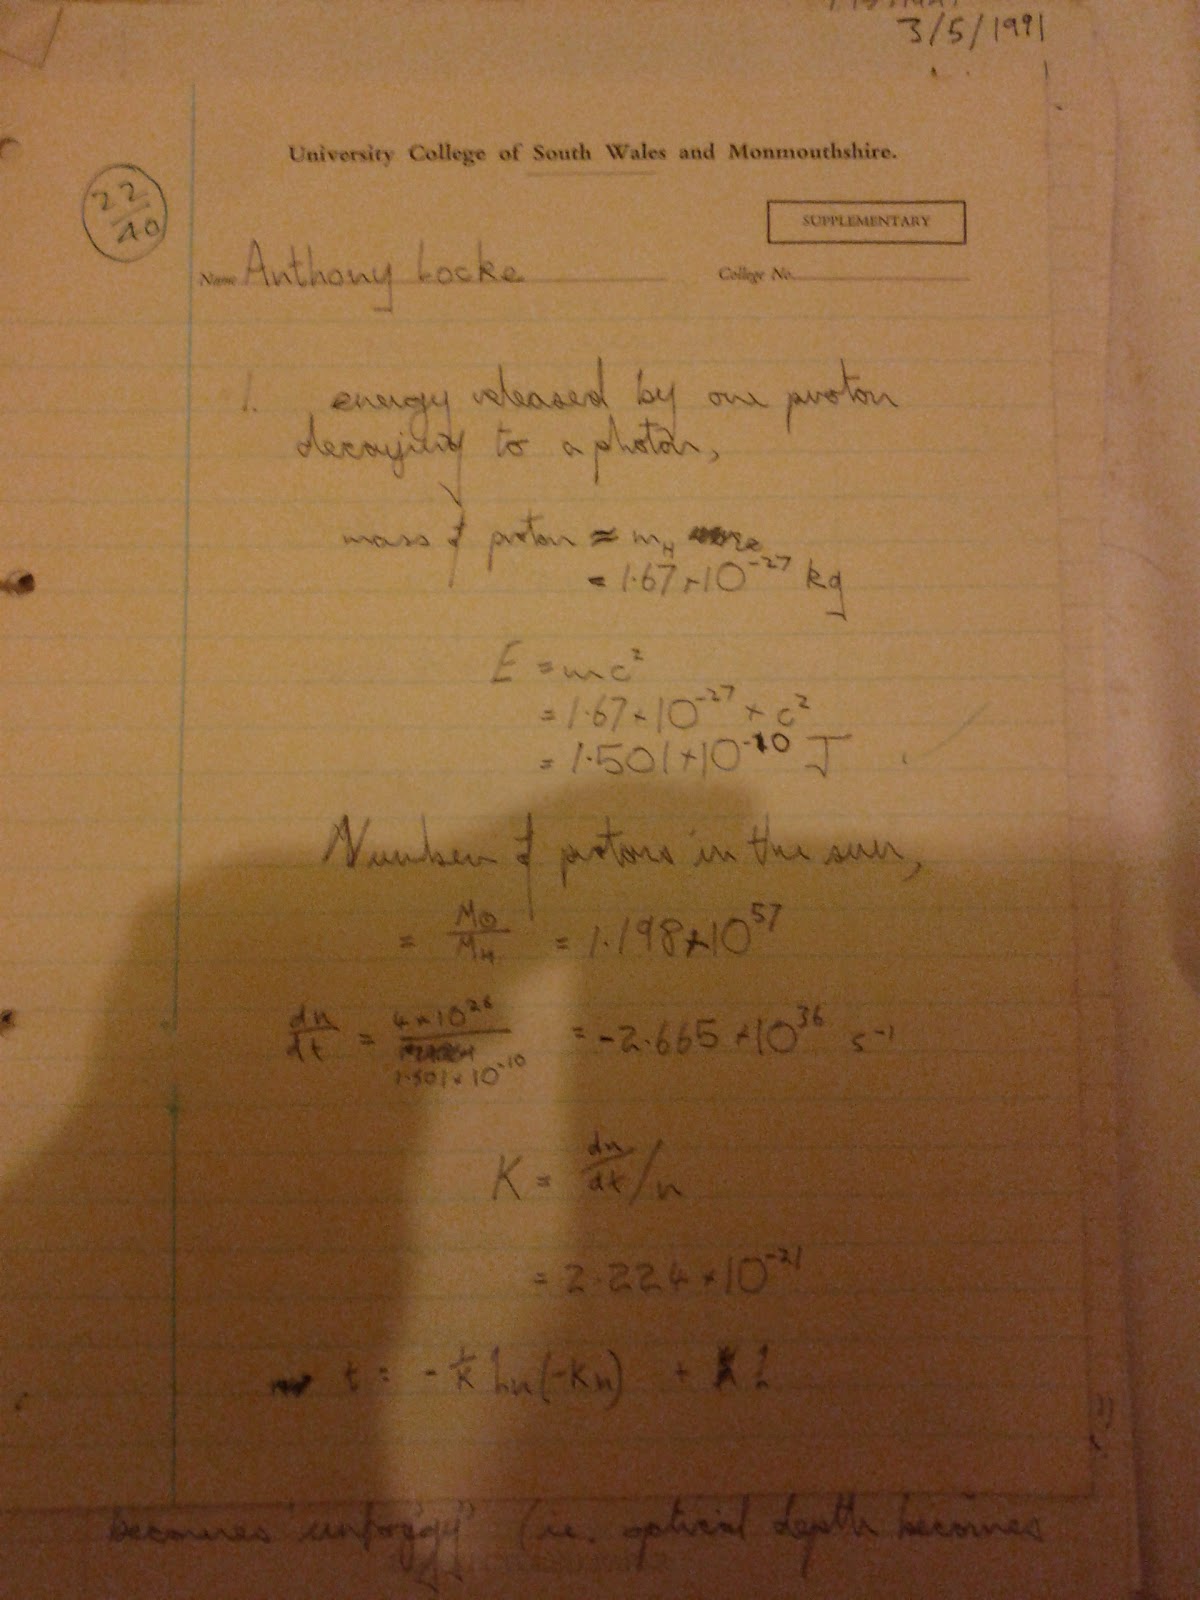 3/5/1991
University College of South Wales and Monmouthshire.
22/40
SUPPLEMENTARY
Name Anthony Locke College No.
1. energy released by one proton
decaying to a photon,
mass of proton ≈ m_H
= 1.67 × 10^-27 kg
E = mc^2
= 1.67 × 10^-27 × c^2
= 1.501 × 10^-10 J
Number of protons in the sun,
= M⊙/M_H = 1.198 × 10^57
dn/dt = 4 × 10^26 / 1.501 × 10^-10 = -2.665 × 10^36 s^-1
K = dn/dt / n
= 2.224 × 10^-21
t = -1/K ln(-Kn) +
becomes "unfoggy" (ie. optical depth becomes